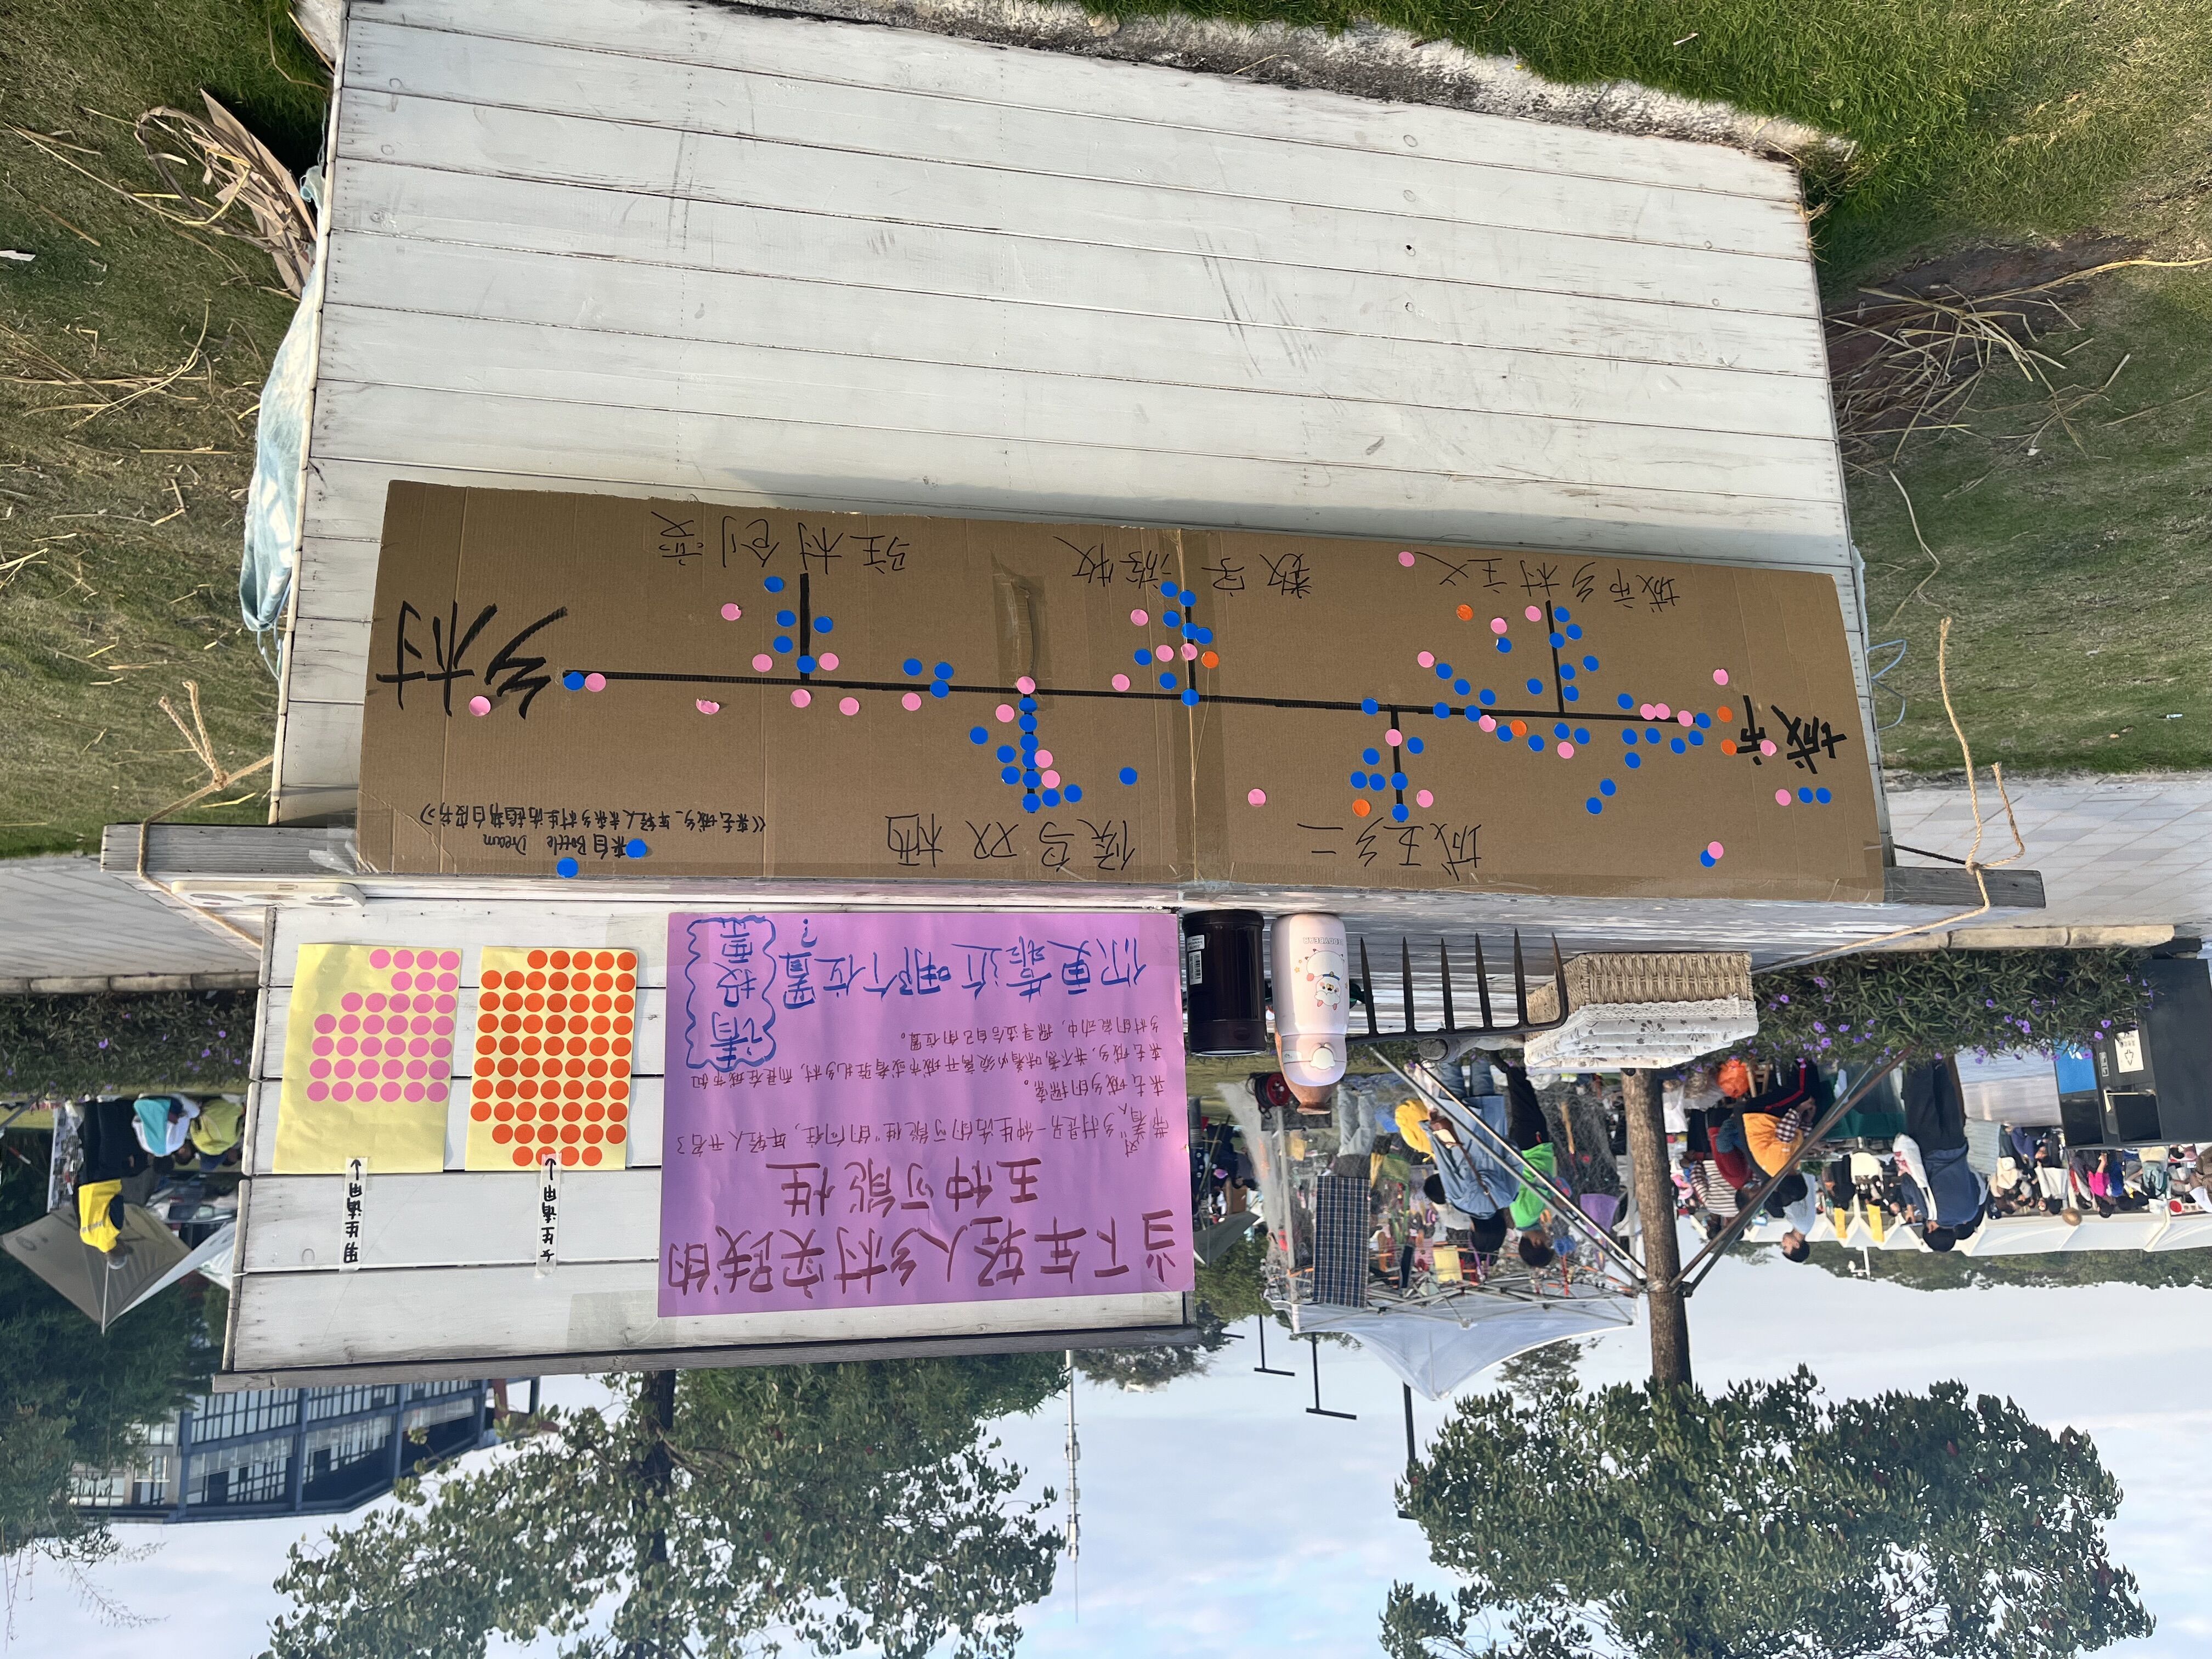 当下年轻人乡村实践的
五种可能性
带着对"乡村是另一种生活的可能性"的向往，年轻人开启了
来去城乡的探索。
来去城乡，并不意味着必须离开城市或者驻扎乡村，而是在城市和
乡村的流动中，探寻适合自己的位置。
你更靠近哪个位置
？
请
投
票
女生请用
男生请用
城五乡二
候鸟双栖
来自 Bottle Dream
《来去城乡_年轻人未来乡村生活趋势白皮书》
城市
乡村
城市乡村主义
数字游牧
驻村创变